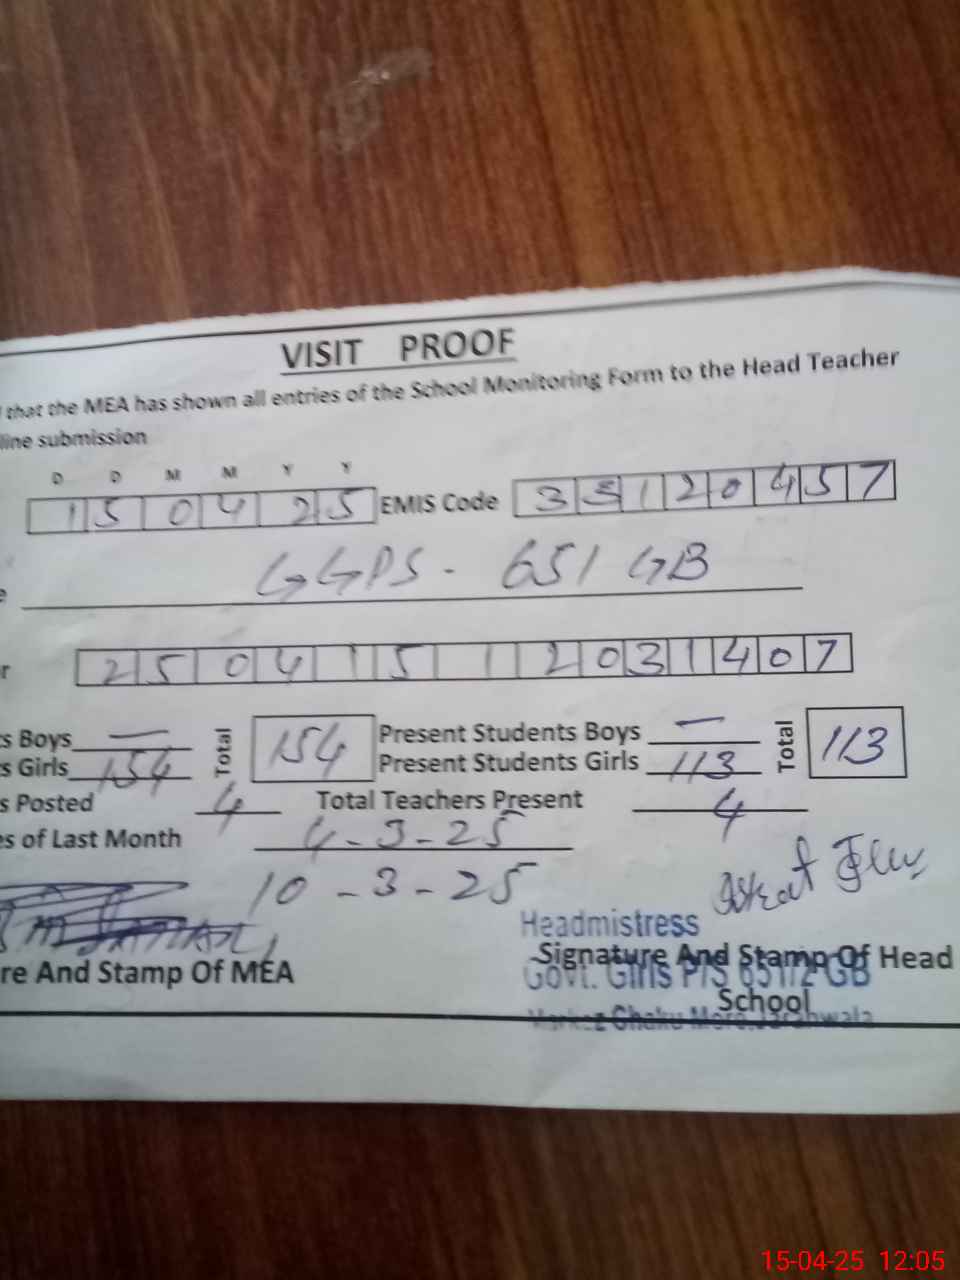 VISIT PROOF
that the MEA has shown all entries of the School Monitoring Form to the Head Teacher
line submission
D D M M Y Y
150425 EMIS Code 33120457
GGPS - 651 GB
25041512031407
s Boys — Total 154 Present Students Boys — Total 113
s Girls 154 Present Students Girls 113
s Posted 4 Total Teachers Present 4
es of Last Month 4-3-25
10-3-25
Headmistress
re And Stamp Of MEA Signature And Stamp Of Head
Govt. Girls P/S 651/2 GB
School
15-04-25 12:05